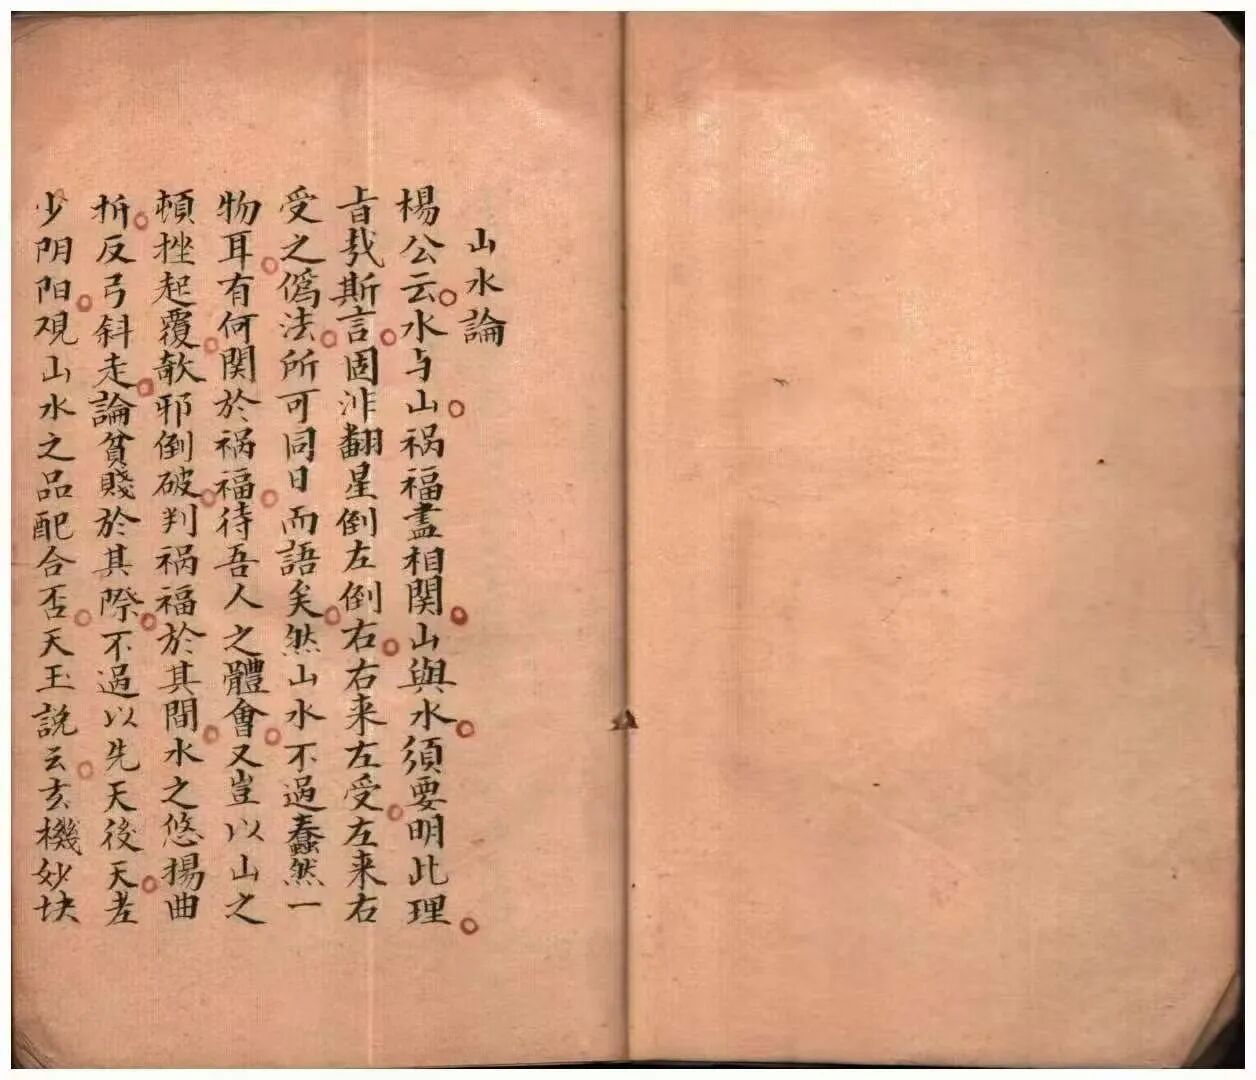 山水論
楊公云水与山祸福盡相関山與水須要明此理
旨㦲斯言固非翻星倒左倒右右来左受左来右
受之僞法所可同日而語矣然山水不過蠢然一
物耳有何関於祸福待吾人之體會又豈以山之
頓挫起覆欹邪倒破判祸福於其間水之悠揚曲
折反弓斜走論貧賤於其際不過以先天後天老
少阴阳观山水之品配合否天玉説云玄機妙块